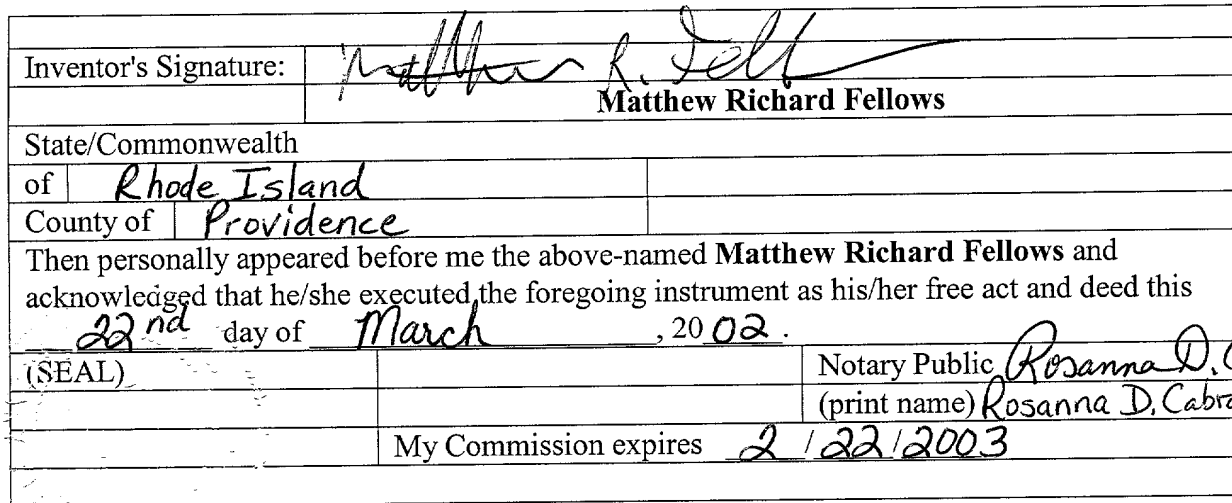 Inventor's Signature: Matthew R. Fell
Matthew Richard Fellows
State/Commonwealth
of Rhode Island
County of Providence
Then personally appeared before me the above-named Matthew Richard Fellows and
acknowledged that he/she executed the foregoing instrument as his/her free act and deed this
22nd day of March, 2002.
(SEAL) Notary Public Rosanna D. C
(print name) Rosanna D. Cabra
My Commission expires 2/22/2003